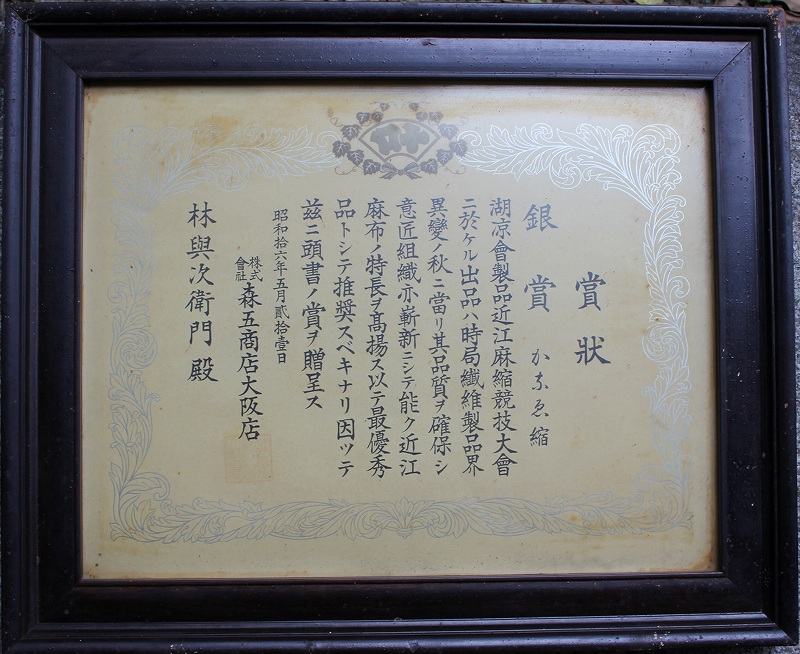 賞狀
銀賞 かなゑ縮
湖凉會製品近江麻縮競技大會
ニ於ケル出品ハ時局纖維製品界
異變ノ秋ニ當リ其品質ヲ確保シ
意匠組織亦嶄新ニシテ能ク近江
麻布ノ特長ヲ髙揚ス以テ最優秀
品トシテ推奬スベキナリ因ツテ
茲ニ頭書ノ賞ヲ贈呈ス
昭和拾六年五月貳拾壹日
株式會社 森五商店大阪店
林與次衛門殿